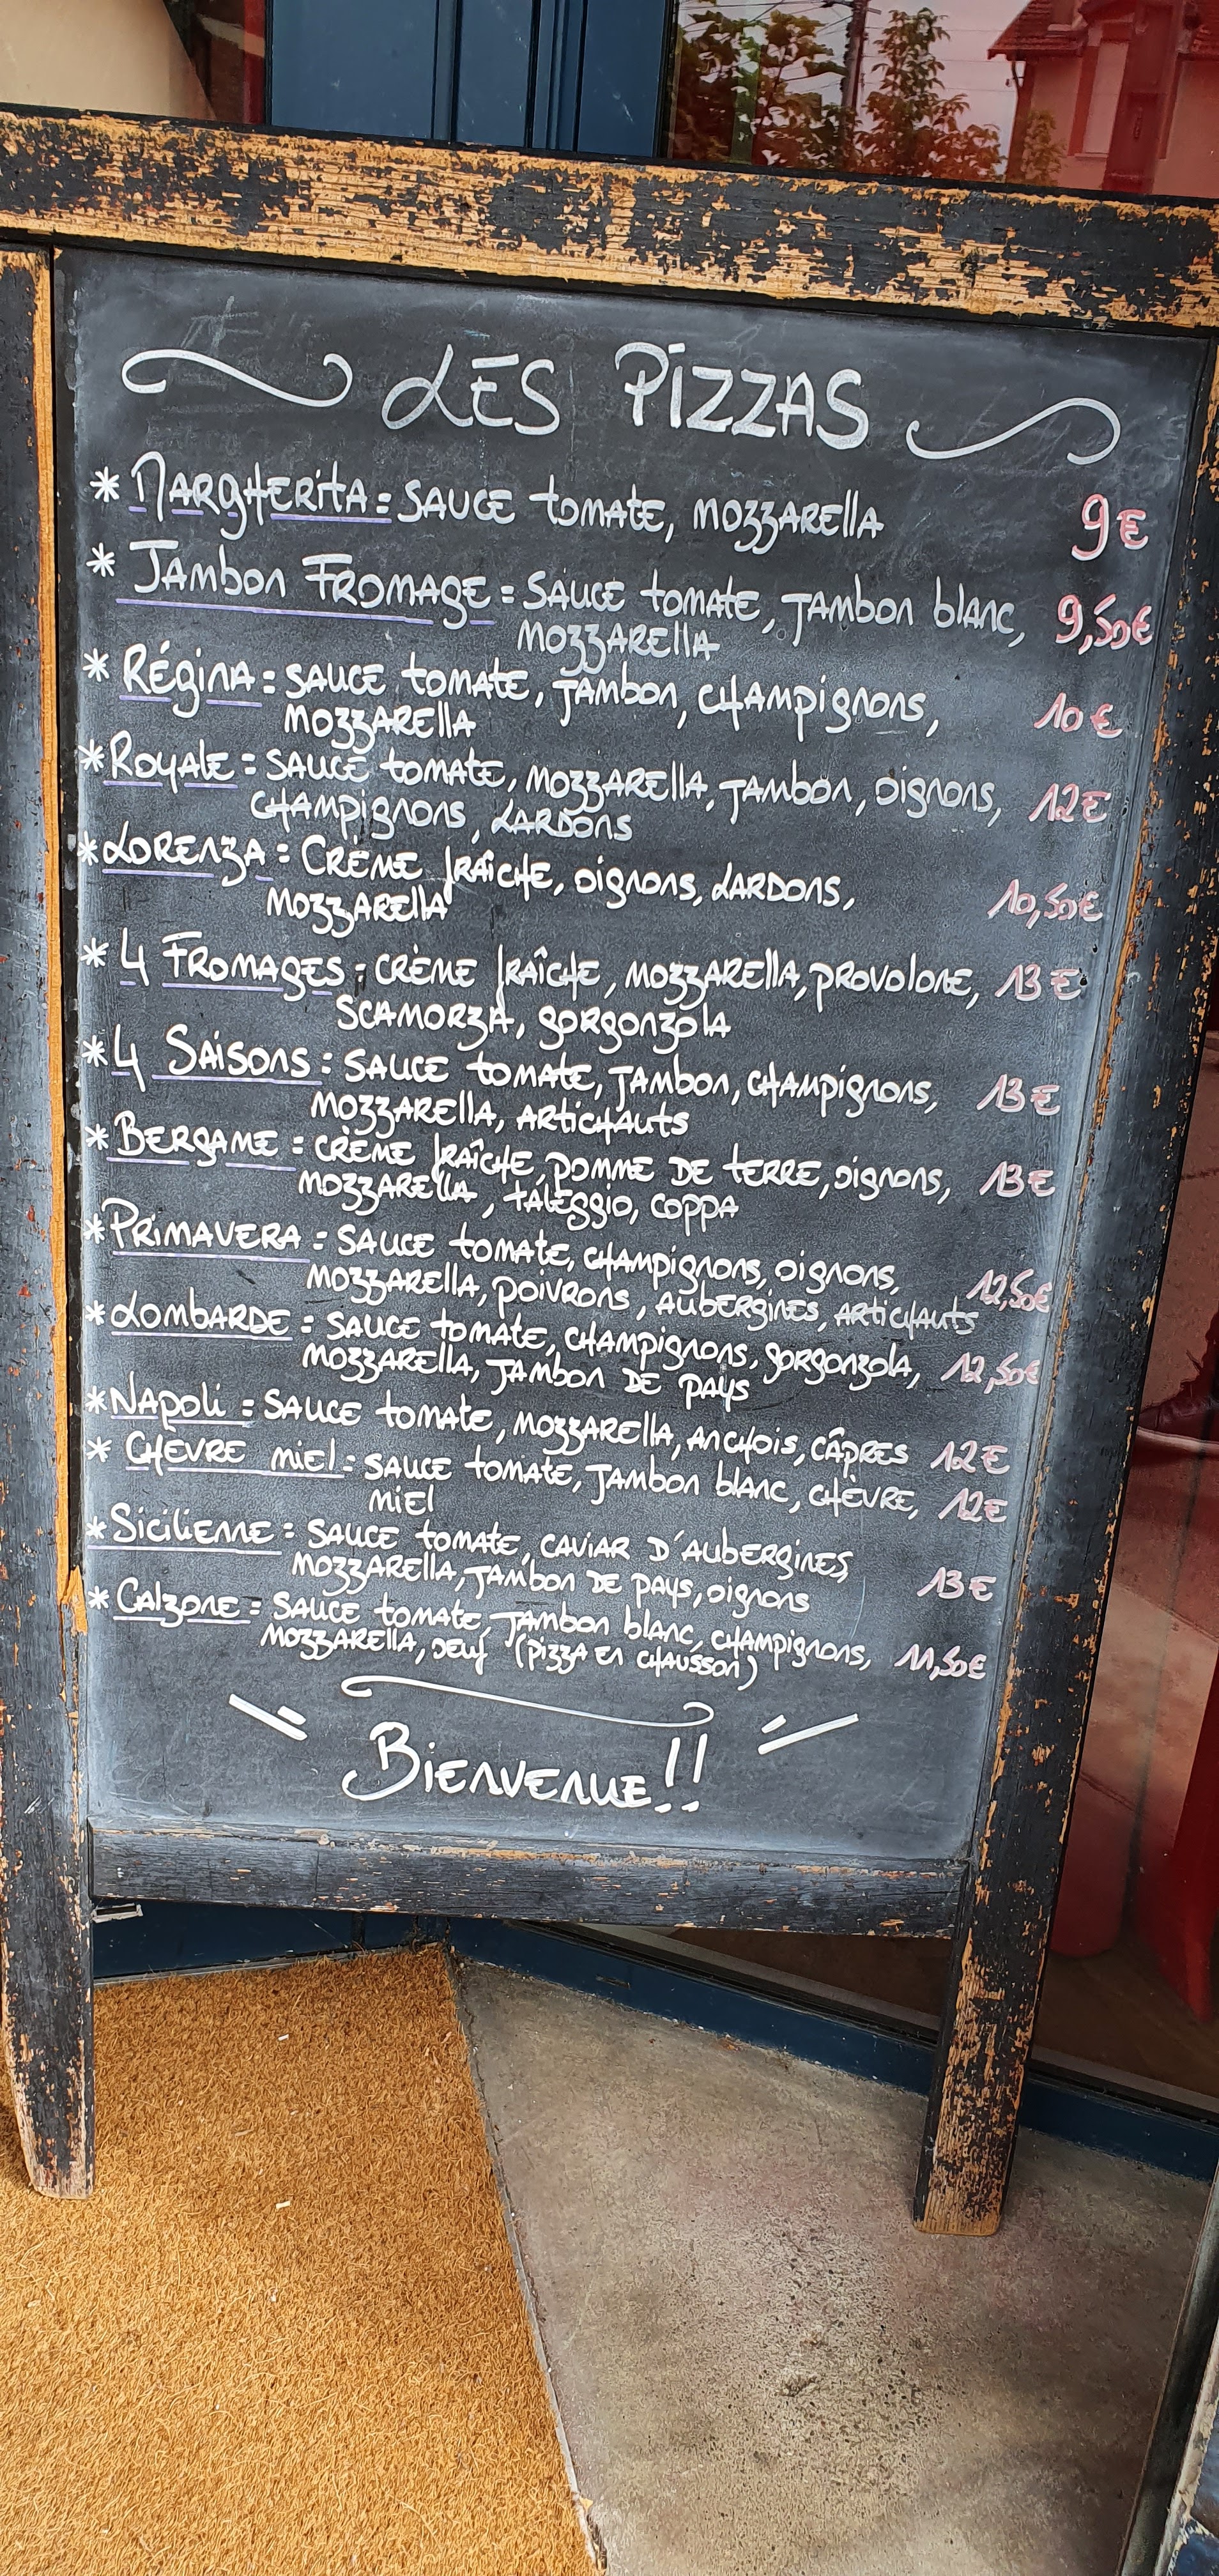 LES PIZZAS
* MARGHERITA = SAUCE tomATE, MOZZARELLA 9€
* JAMBON FROMAGE = SAUCE tomATE, JAMBON blANC, 9,50€
MOZZARELLA
* RÉGINA = SAUCE tomATE, JAMBON, CHAMPIGNONS, 10€
MOZZARELLA
* ROYALE = SAUCE tomATE, MOZZARELLA, JAMBON, OIGNONS, 12€
CHAMPIGNONS, LARDONS
* LORENZA = CRÈME FRAÎCHE, OIGNONS, LARDONS, 10,50€
MOZZARELLA
* 4 FROMAGES = CRÈME FRAÎCHE, MOZZARELLA, PROVOLONE, 13€
SCAMORZA, GORGONZOLA
* 4 SAISONS = SAUCE tomATE, JAMBON, CHAMPIGNONS, 13€
MOZZARELLA, ARTICHAUTS
* BERGAME = CRÈME FRAÎCHE, POMME DE TERRE, OIGNONS, 13€
MOZZARELLA, TALEGGIO, COPPA
* PRIMAVERA = SAUCE tomATE, CHAMPIGNONS, OIGNONS, 12,50€
MOZZARELLA, POIVRONS, AUBERGINES, ARTICHAUTS
* LOMBARDE = SAUCE TOMATE, CHAMPIGNONS, GORGONZOLA, 12,50€
MOZZARELLA, JAMBON DE PAYS
* NAPOLI = SAUCE TOMATE, MOZZARELLA, ANCHOIS, CÂPRES 12€
* CHÈVRE MIEL = SAUCE TOMATE, JAMBON BLANC, CHÈVRE, 12€
MIEL
* SICILIENNE = SAUCE TOMATE, CAVIAR D'AUBERGINES, 13€
MOZZARELLA, JAMBON DE PAYS, OIGNONS
* CALZONE = SAUCE TOMATE, JAMBON BLANC, CHAMPIGNONS, 11,50€
MOZZARELLA, OEUF (PIZZA EN CHAUSSON)
BIENVENUE !!